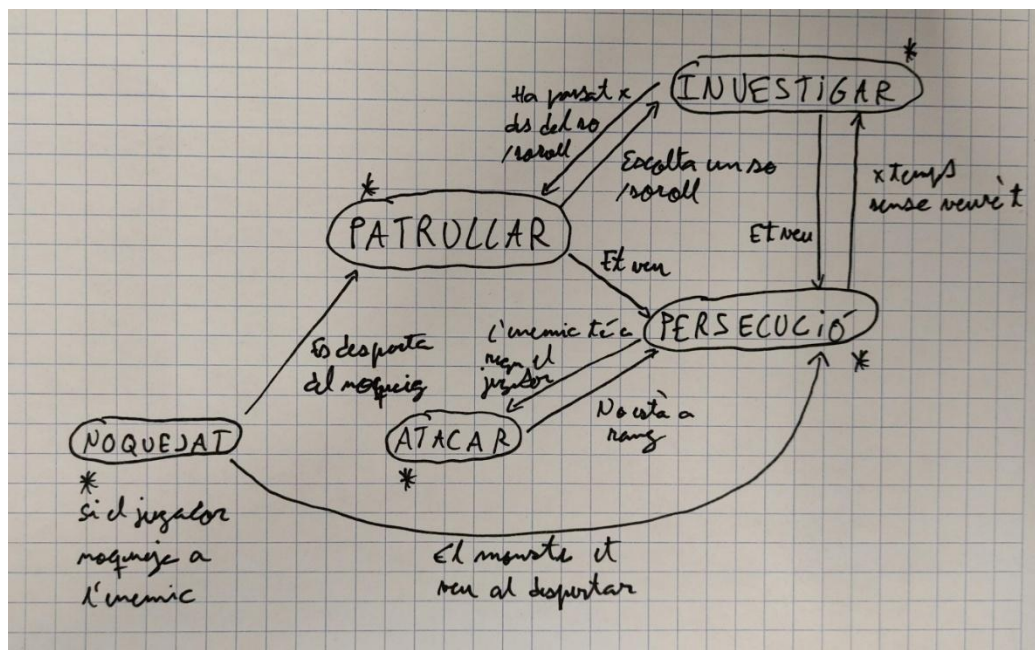 *
INVESTIGAR
Ha passat x
des del so
/soroll
Escolta un so
/soroll
x temps
sense veure't
Et veu
*
PATRULLAR
Et veu
PERSECUCIÓ
*
L'enemic té a
rang el
jugador
No està a
rang
Es desperta
del noqueig
NOQUEJAT
*
Si el jugador
noqueja a
l'enemic
ATACAR
*
El monstre et
veu al despertar